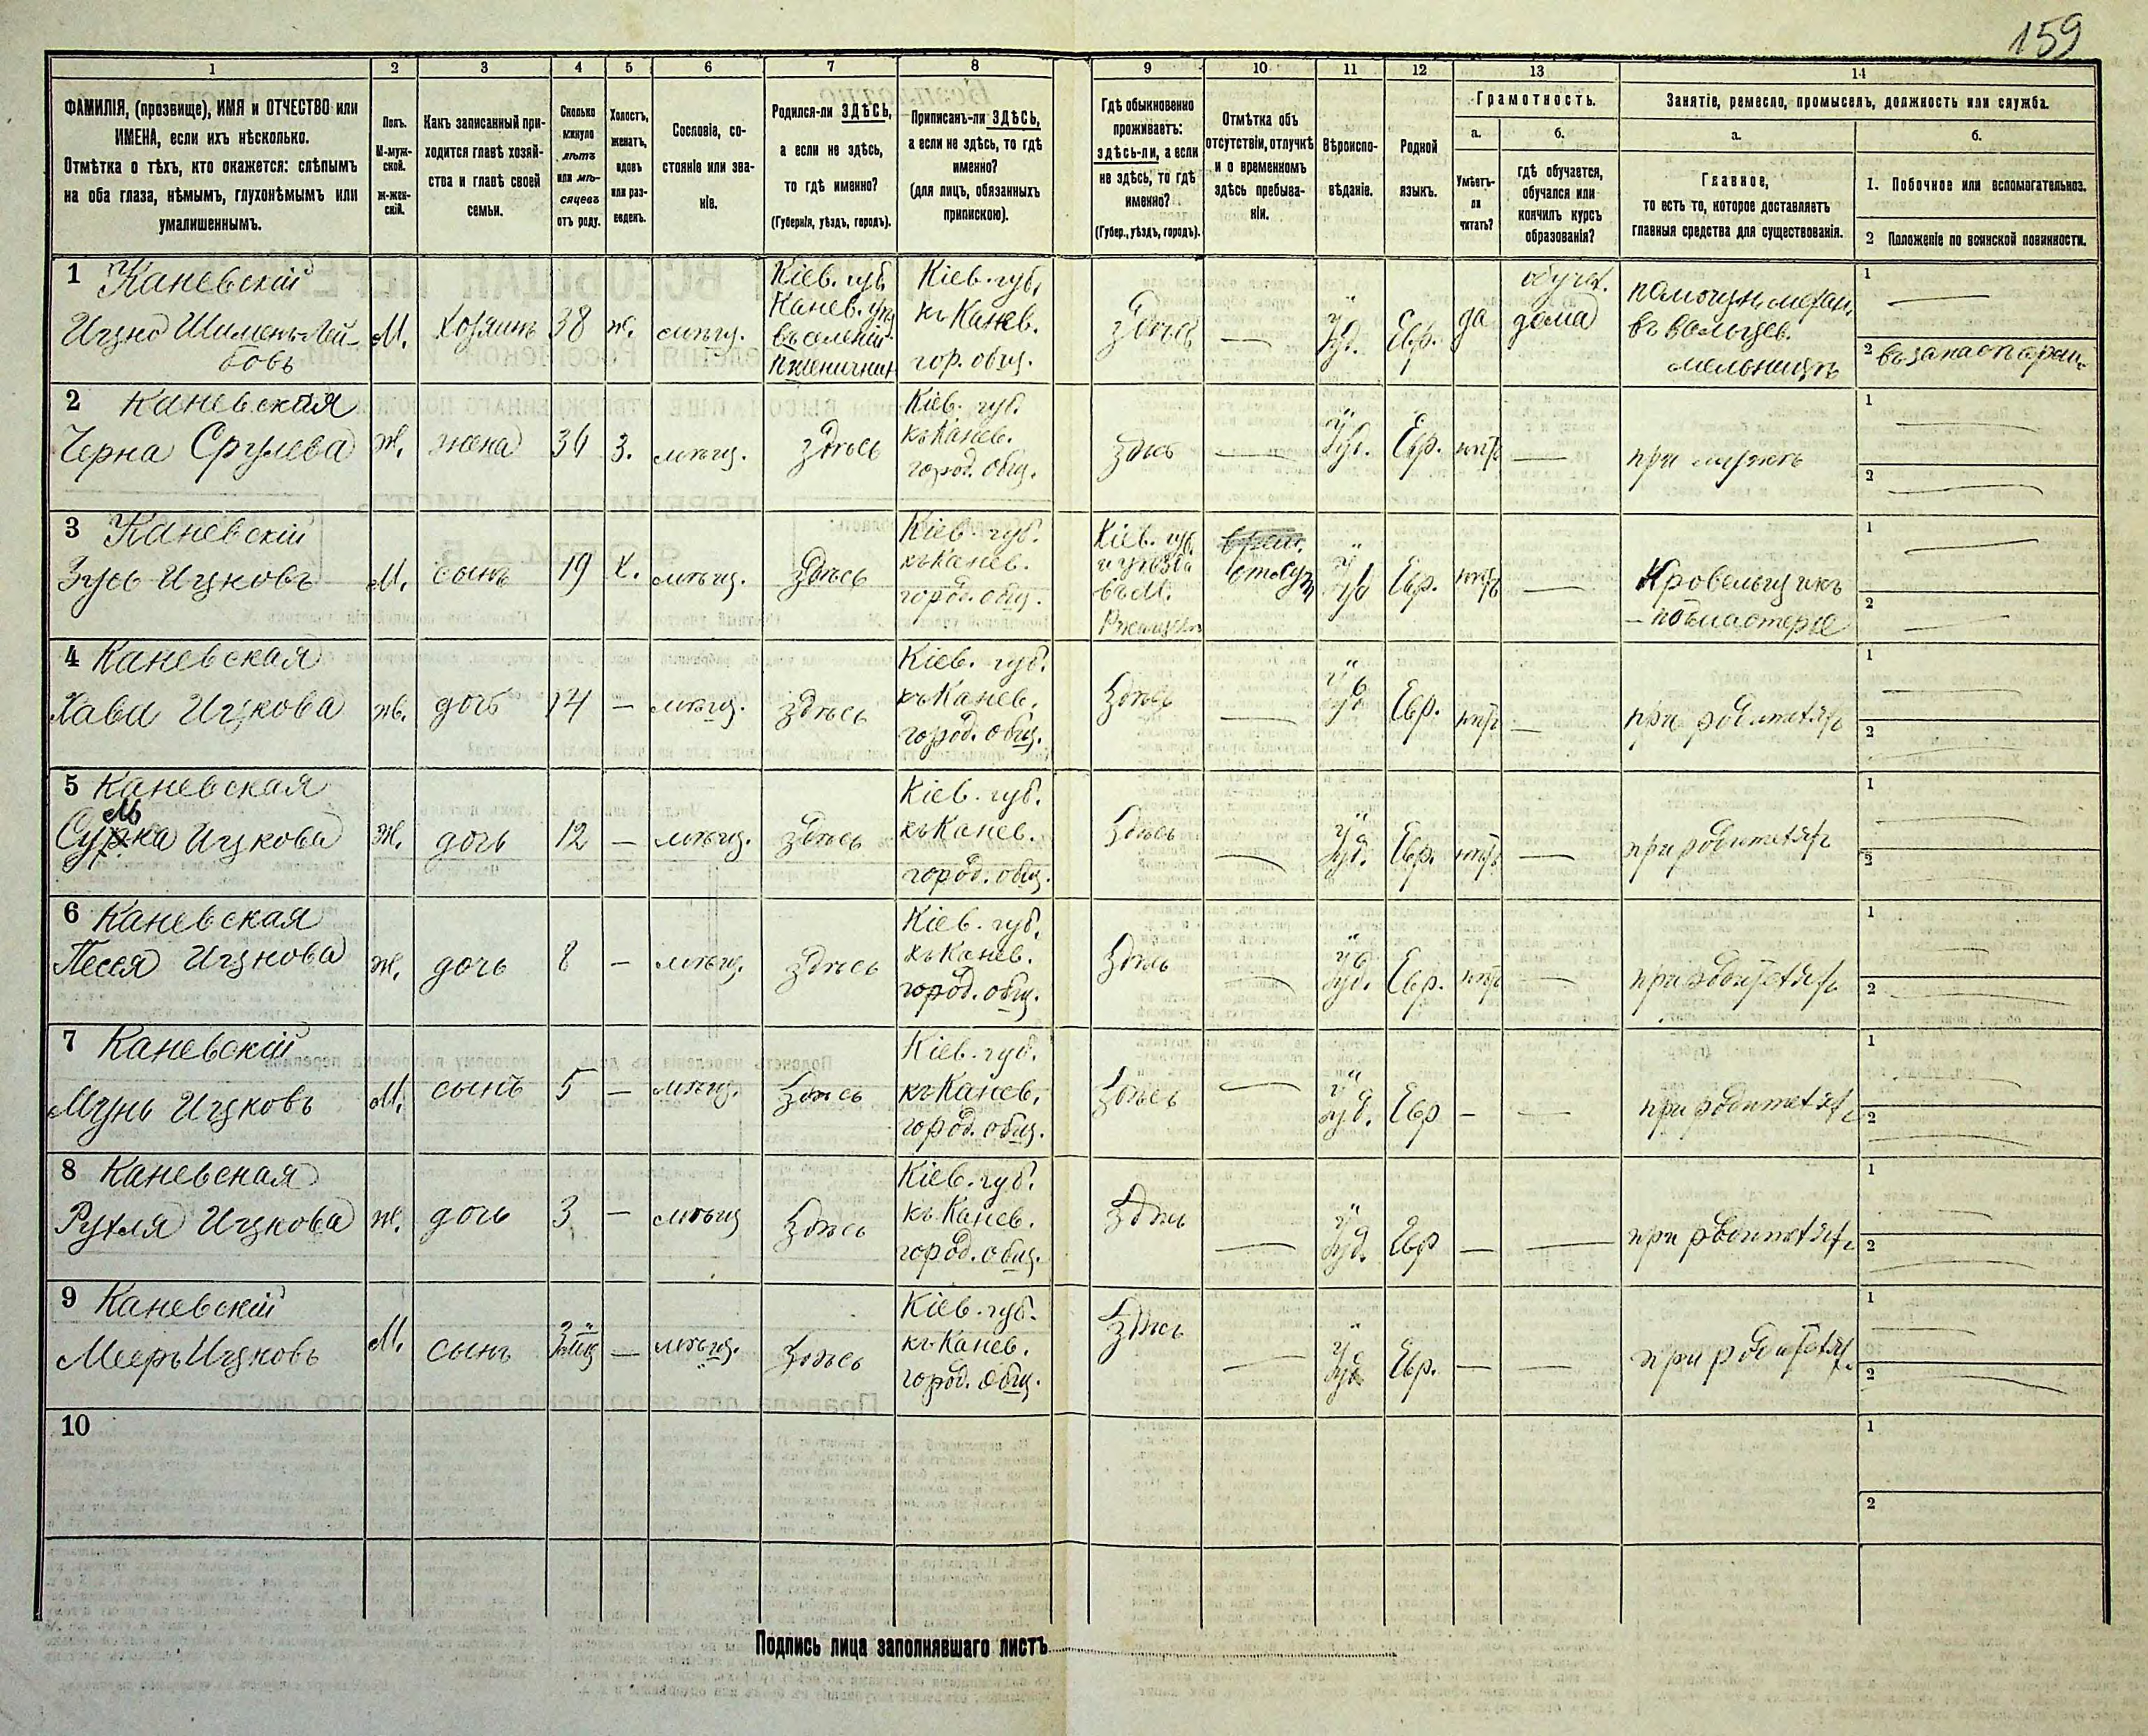 159
1
2
3
4
5
6
7
8
9
10
11
12
13
14
ФАМИЛІЯ, (прозвище), ИМЯ и ОТЧЕСТВО или
ИМЕНА, если ихъ нѣсколько.
Отмѣтка о тѣхъ, кто окажется: слѣпымъ
на оба глаза, нѣмымъ, глухонѣмымъ или
умалишеннымъ.
Полъ.
М-муж-
ской.
ж-жен-
скій.
Какъ записанный при-
ходится главѣ хозяй-
ства и главѣ своей
семьи.
Сколько
минуло
лѣтъ
или мѣ-
сяцевъ
отъ роду.
Холостъ,
женатъ,
вдовъ
или раз-
веденъ.
Сословіе, со-
стояніе или зва-
ніе.
Родился-ли ЗДѢСЬ,
а если не здѣсь,
то гдѣ именно?
(Губернія, уѣздъ, городъ).
Приписанъ-ли ЗДѢСЬ,
а если не здѣсь, то гдѣ
именно?
(для лицъ, обязанныхъ
припискою).
Гдѣ обыкновенно
проживаетъ:
здѣсь-ли, а если
не здѣсь, то гдѣ
именно?
(Губер., уѣздъ, городъ).
Отмѣтка объ
отсутствіи, отлучкѣ
и о временномъ
здѣсь пребыва-
ніи.
Вѣроиспо-
вѣданіе.
Родной
языкъ.
Грамотность.
а.
Умѣетъ-
ли
читать?
б.
гдѣ обучается,
обучался или
кончилъ курсъ
образованія?
Занятіе, ремесло, промыселъ, должность или служба.
а.
Главное,
то есть то, которое доставляетъ
главныя средства для существованія.
б.
1. Побочное или вспомогательное.
2 Положеніе по воинской повинности.
1 Каневскій
Ицко Шимонъ-Лей-
бовъ
М. хозяинъ 38 ж. мѣщ.
Кіев. губ.
Канев. уѣз.
въ селеніи
Пшеничник
Кіев. губ.
къ Канев.
гор. общ.
здѣсь — Іуд. Евр. да
обучал.
дома
помощн. механ.
въ вальцев.
мельницѣ
1 —
2 въ запасѣ арміи
2 Каневская
Черна Срулева ж. жена 36 з. мѣщ. здѣсь
Кіев. губ.
къ Канев.
город. общ.
здѣсь — Іуд. Евр. нѣтъ — при мужѣ
1 —
2 —
3 Каневскій
Зусь Ицковъ М. сынъ 19 х. мѣщ. здѣсь
Кіев. губ.
къ Канев.
город. общ.
Кіев. губ.
и уѣзда
въ М.
Ржищев
Отсут. Іуд Евр. нѣтъ —
Кровельщикъ
– подмастерье
1 —
2 —
4 Каневская
Хава Ицкова ж. дочь 14 — мѣщ. здѣсь
Кіев. губ.
къ Канев.
город. общ.
здѣсь — Іуд Евр. нѣтъ — при родителях
1 —
2 —
5 Каневская
Сумка Ицкова ж. дочь 12 — мѣщ. здѣсь
Кіев. губ.
къ Канев.
город. общ.
здѣсь — Іуд. Евр. нѣтъ — при родителях
1 —
2 —
6 Каневская
Песся Ицкова ж. дочь 8 — мѣщ. здѣсь
Кіев. губ.
къ Канев.
город. общ.
здѣсь — Іуд. Евр. нѣтъ — при родителях
1 —
2 —
7 Каневскій
Мунь Ицковъ М. сынъ 5 — мѣщ. здѣсь
Кіев. губ.
къ Канев.
город. общ.
здѣсь — Іуд. Евр — — при родителях
1 —
2 —
8 Каневская
Рухля Ицкова ж. дочь 3 — мѣщ здѣсь
Кіев. губ.
къ Канев.
город. общ.
здѣсь — Іуд. Евр — — при родителях
1 —
2 —
9 Каневскій
Мееръ Ицковъ М. сынъ 3 мц — мѣщ. здѣсь
Кіев. губ.
къ Канев.
город. общ.
здѣсь — Іуд Евр. — — при родителях
1 —
2 —
10
1
2
Подпись лица заполнявшаго листъ